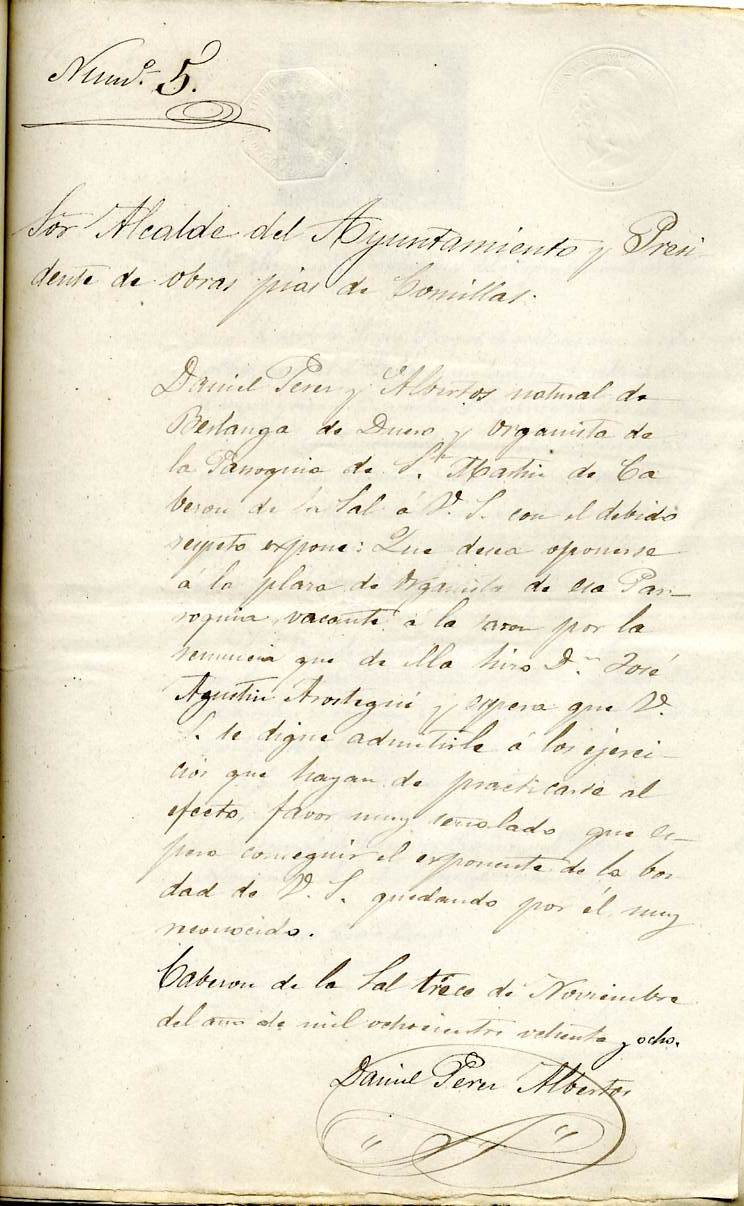 Numº. 5.
Sor Alcalde del Ayuntamiento y Presi-
dente de obras pias de Comillas.
Daniel Perez y Albertos natural de
Berlanga de Duero y Organista de
la Parroquia de S.n Martin de Ca
bezon de la Sal á V. S. con el debido
respeto expone: Que desea oponerse
á la plaza de Organista de esa Par-
roquia, vacante á la sazon por la
renuncia que de ella hizo D.n José
Agustin Arostegui y espera que V.
S. se digne admitirle á los ejerci-
cios que hayan de practicarse al
efecto, favor muy señalado que es-
pera conseguir el exponente de la bon
dad de V. S. quedando por él muy
reconocido.
Cabezon de la Sal trece de Noviembre
del año de mil ochocientos ochenta y ocho.
Daniel Perez Albertos